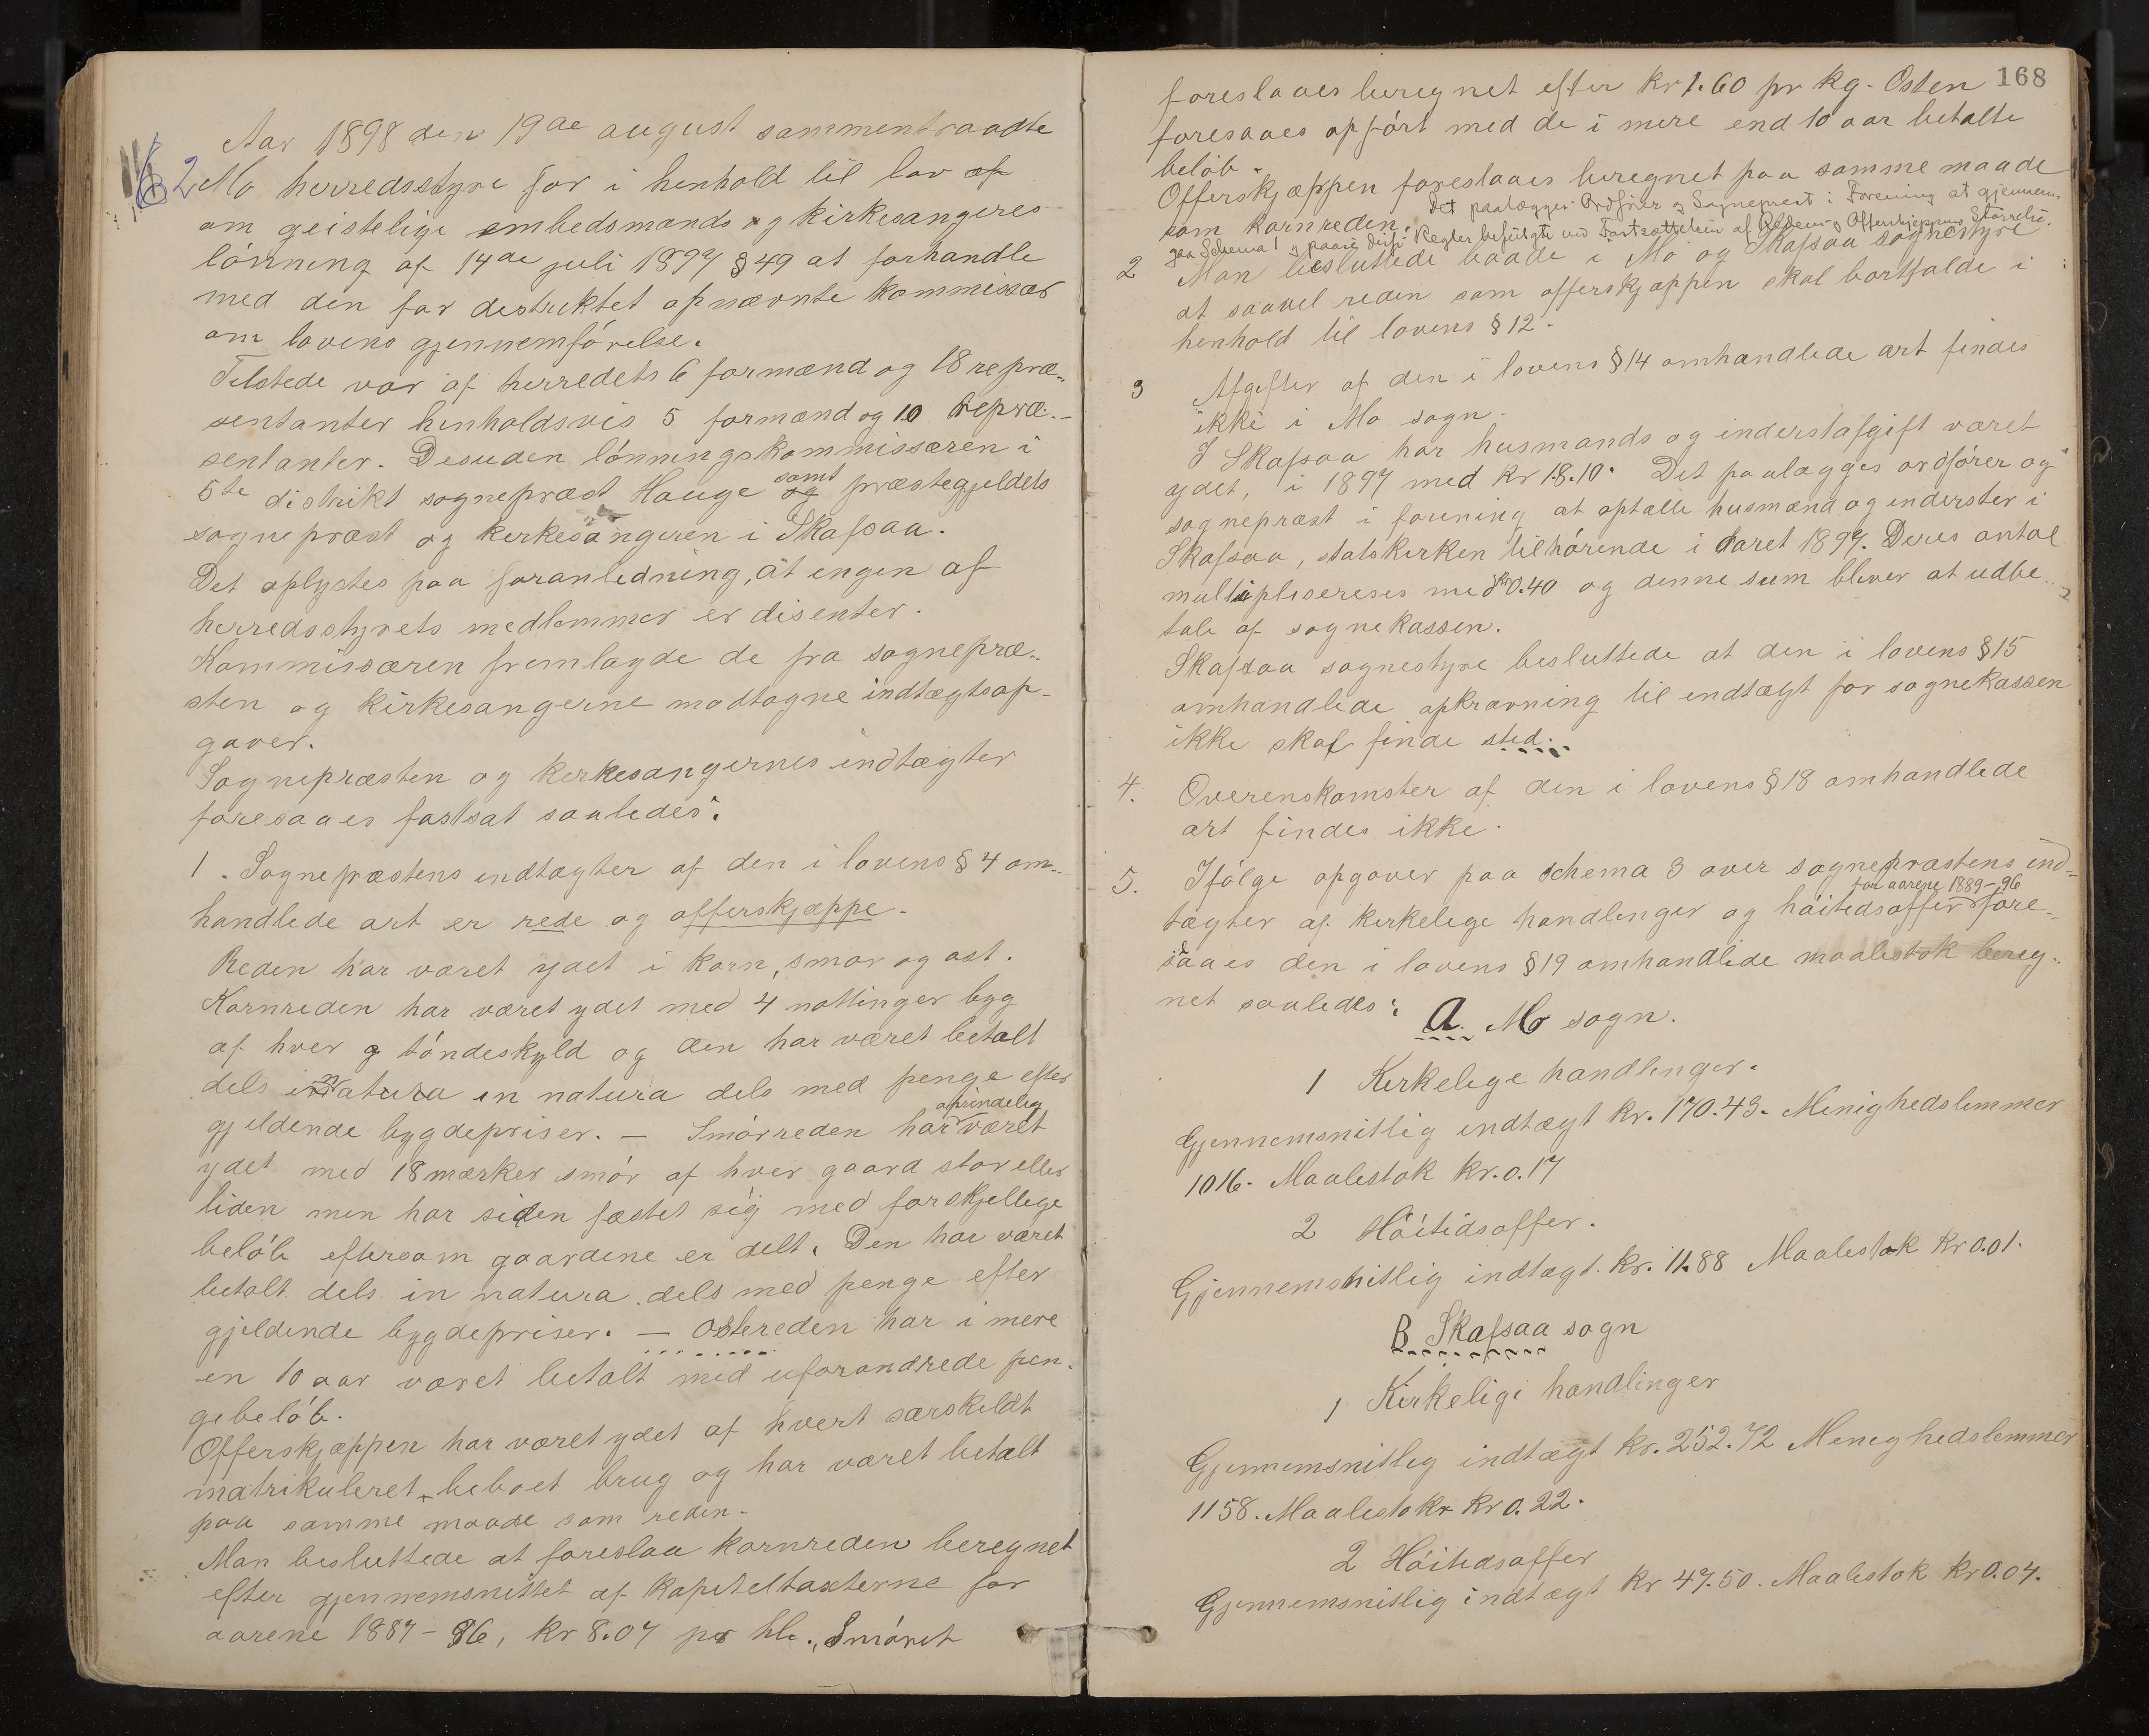 62
Aar 1898 den 19de august sammentraadte
Mo herredsstyre for i henhold til lov af
om geistelige embedsmænds og kirkesangeres
lönning af 14de juli 1897 § 49 at forhandle
med den for destriktet opnævnte kommissær
om lovens gjennemförelse.
Tilstede var af herredets 6 formænd og 18 repræ-
sentanter henholdsvis 5 formænd og 10 repræ-
sentanter. Desuden lönningskommissæren i
5te distrikt sogneprest Hauge og samt præstegjeldets
sogneprest og kerkesangeren i Skafsaa.
Det oplystes paa foranledning, at ingen af
herredsstyrets medlemmer er disenter.
Kommissæren fremlagde de fra sognepræ-
sten og kirkesangerne modtagne indtægtsop-
gaver.
Sognepræsten og kerkesangernes indtægter
foresaaes fastsat saaledes:
1. Sognepræstens indtægter af den i lovens § 4 om-
handlede art er rede og offerskjæppe.
Reden har været ydet i korn, smør og ost.
Kornreden har været ydet med 4 nottinger byg
af hver töndeskyld og den har været betalt
dels in natura dels med penge efter
gjeldende bygdepriser. — Smörreden har oprindelig været
ydet med 18 mærker smör af hver gaard stor eller
liden men har siden fæstet sig med forskjellige
belöb eftersom gaardene er delt. Den har været
betalt dels in natura dels med penge efter
gjeldende bygdepriser. — Ostereden har i mere
en 10 aar været betalt med uforandrede pen-
gebelöb.
Offerskjæppen har været ydet af hvert særskildt
matrikuleret beboet brug og har været betalt
paa samme maade som reden.
Man besluttede at foreslaa kornreden beregnet
efter gjennemsnittet af kapiteltaxterne for
aarene 1887-96, kr 8.07 pr hl. Smöret
168
foreslaaes beregnet efter kr 1.60 pr kg. Osten
foresaaes opfört med de i mere end 10 aar betalte
belöb.
Offerskjæppen foreslaaes beregnet paa samme maade
som kornreden. Det paalægges Ordförer og Sogneprest i Forening at gjennem-
gaa Schema 1 og paase disse Regler befulgte ved Fastsættelsen af Redens og Offerskjeppens Störrelse.
2 Man besluttede baade i Mo og Skafsaa sognestyre
at saavel reden som offerskjæppen skal bortfalde i
henhold til lovens § 12.
3 Afgifter af den i lovens § 14 omhandlede art findes
ikke i Mo sogn.
I Skafsaa har husmands og inderstafgift været
ydet, i 1897 med kr 18.10. Det paalægges ordförer og
sognepræst i forening at optælle husmænd og inderster i
Skafsaa, statskirken tilhörende i aaret 1897. Deres antal
multiplisereres med kr 0.40 og denne sum bliver at udbe-
tale af sognekassen.
Skafsaa sognestyre besluttede at den i lovens § 15
omhandlede opkrævning til indtægt for sognekassen
ikke skal finde sted.
4. Overenskomster af den i lovens § 18 omhandlede
art findes ikke.
5. Ifölge opgaver paa schema 3 over sognepræstens ind-
tægter af kerkelige handlinger og höitidsoffer for aarene 1889-96 fore-
saaes den i lovens § 19 omhandlede maalestok bereg-
net saaledes:
A. Mo sogn.
1 Kerkelige handlinger.
Gjennemsnitlig indtægt kr. 170.43. Menighedslemmer
1016. Maalestok kr. 0.17
2 Höitidsoffer.
Gjennemsnitlig indtægt kr. 11.88 Maalestok kr 0.01.
B Skafsaa sogn
1 Kirkelige handlinger
Gjennemsnitlig indtægt kr. 252.72 Menighedslemmer
1158. Maalestok kr 0.22.
2 Höitidsoffer
Gjennemsnitlig indtægt kr 47.50. Maalestok kr 0.04.